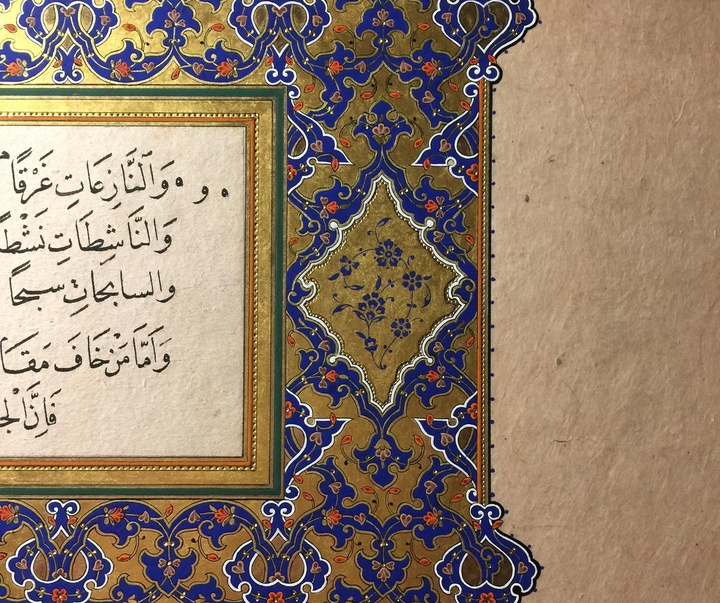 وَٱلنَّازِعَاتِ غَرْقًا
وَالنَّاشِطَاتِ نَشْطًا
والسابحاتِ سبحاً
وَاَمَّا مَنْ خَافَ مَقَا
فَاِنَّ الْجَ